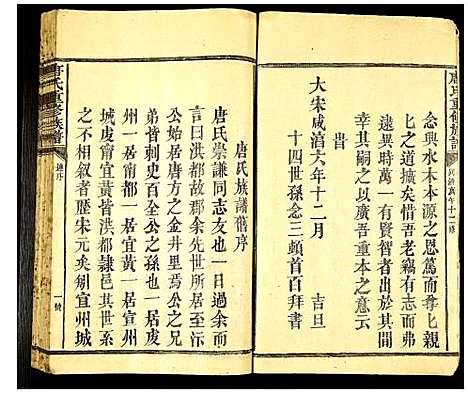 唐氏重修族譜
念興水木本源之思篤而尊之親
之之道擴矣惜吾老竊有志而弗
逮異時萬一有賢智者出
幸其嗣之以廣吾重本之意云
旹
大宋咸淳六年十二月　吉旦
十四世孫念三頓首百拜書
唐氏族譜舊序
唐氏崇謙同志友也一日過余而
言曰洪都故郡余先世所居至沂
其始居唐方之金井里焉公之兄
弟皆刺史百全公之孫也一居虔
州一居南都一居宜黃一居宜州
城虔甯宜黃皆陷邑其世系
之不相敘者歷宋元矣剜宜州城
唐氏重修族譜
舊序
一號